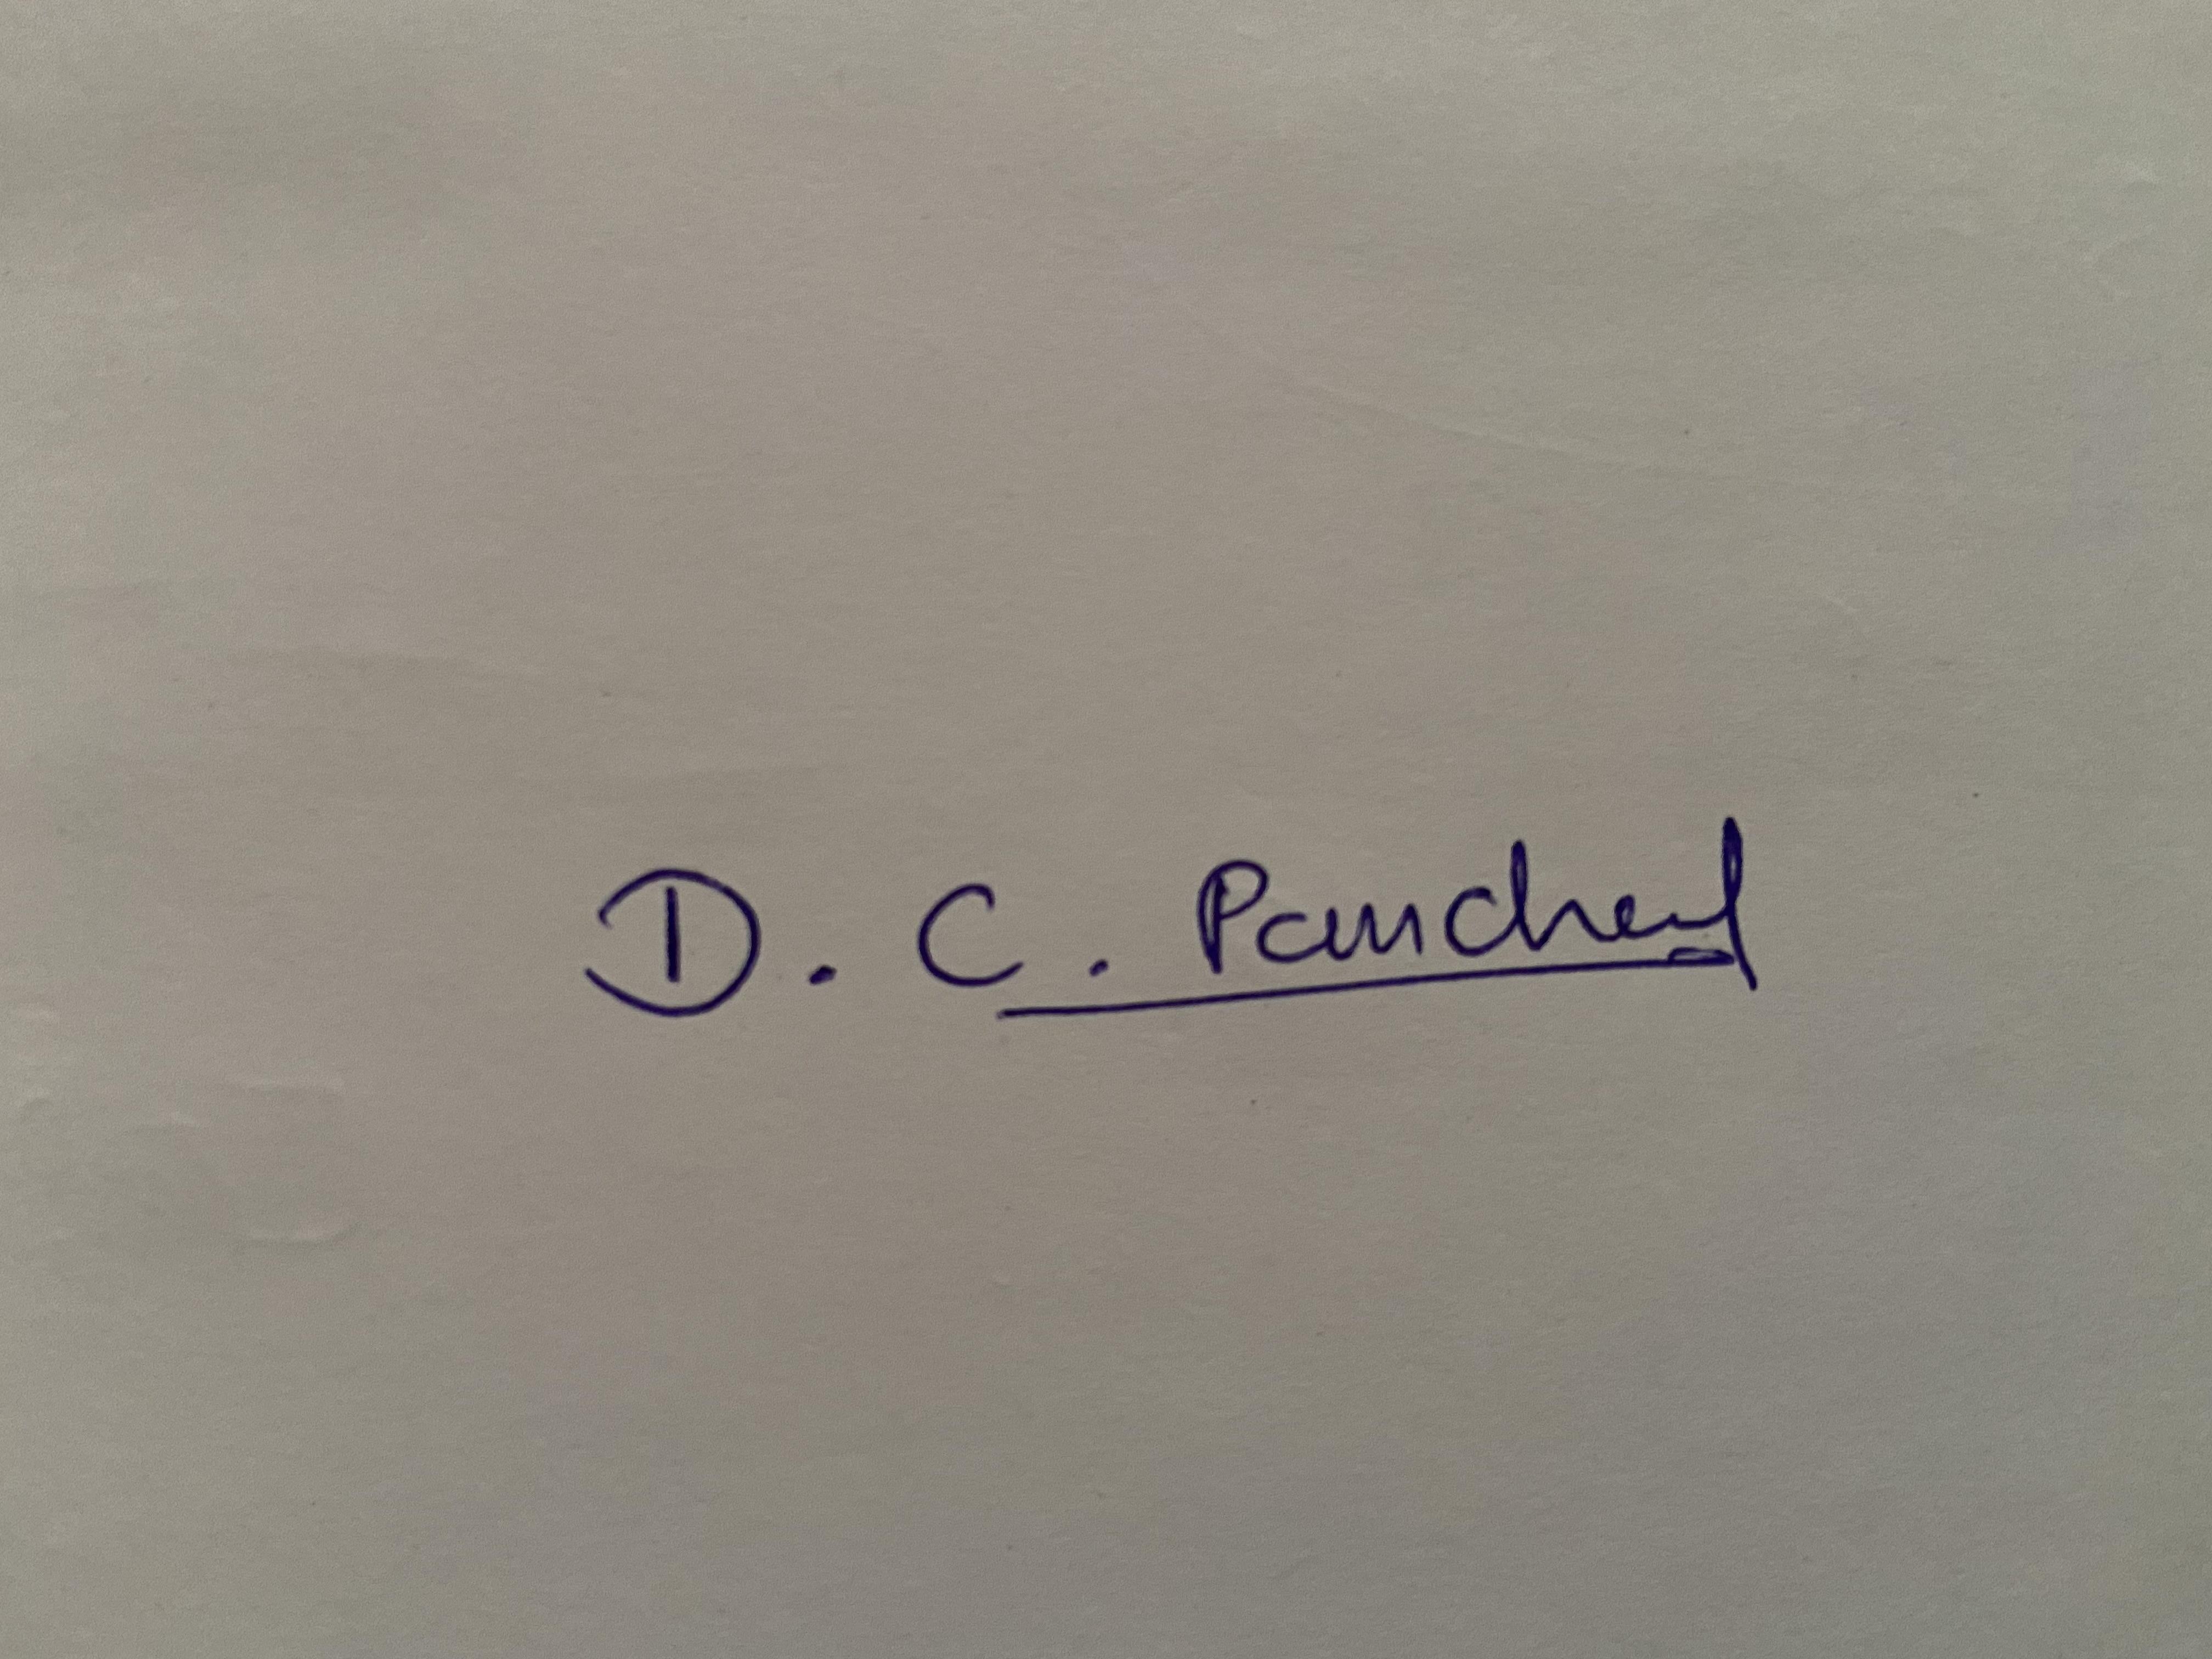 D. C. Panchal